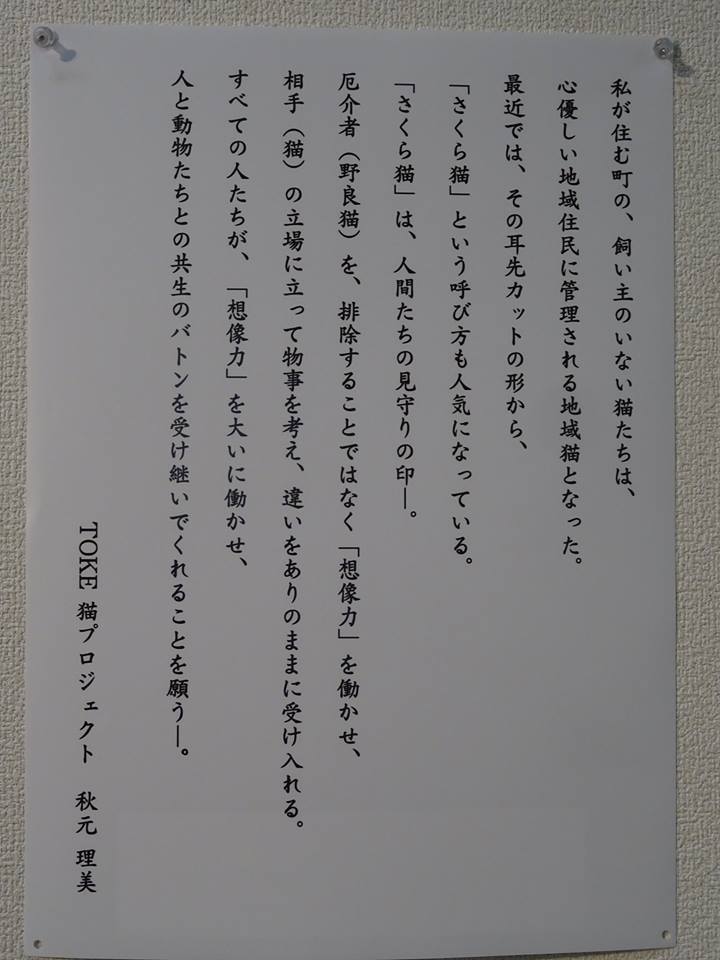 私が住む町の、飼い主のいない猫たちは、
心優しい地域住民に管理される地域猫となった。
最近では、その耳先カットの形から、
「さくら猫」という呼び方も人気になっている。
「さくら猫」は、人間たちの見守りの印―。
厄介者（野良猫）を、排除することではなく「想像力」を働かせ、
相手（猫）の立場に立って物事を考え、違いをありのままに受け入れる。
すべての人たちが、「想像力」を大いに働かせ、
人と動物たちとの共生のバトンを受け継いでくれることを願う―。
TOKE 猫プロジェクト　秋元 理美